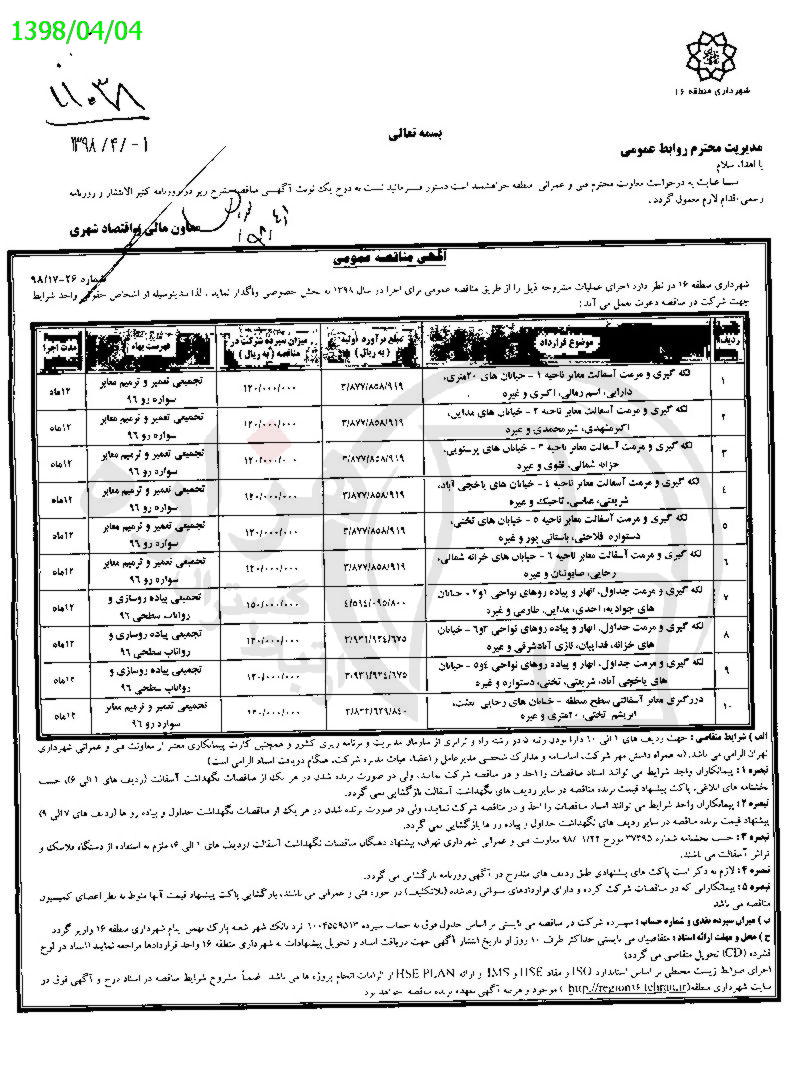 1398/04/04
شهرداری منطقه ۱۶
۱۱۰۳۸
۱۳۹۸/۴/۰۱
بسمه تعالی
مدیریت محترم روابط عمومی
با اهداء سلام
با عنایت به درخواست معاونت محترم فنی و عمرانی منطقه خواهشمند است دستور فرمائید نسبت به درج یک نوبت آگهی مناقصه بشرح زیر در روزنامه کثیر الانتشار و روزنامه
رسمی اقدام لازم معمول گردد.
معاون مالی و اقتصاد شهری
آگهی مناقصه عمومی
شماره ۲۶-۹۸/۱۷
شهرداری منطقه ۱۶ در نظر دارد اجرای عملیات مشروحه ذیل را از طریق مناقصه عمومی برای اجرا در سال ۱۳۹۸ به بخش خصوصی واگذار نماید. لذا بدینوسیله از اشخاص حقوقی واجد شرایط
جهت شرکت در مناقصه دعوت بعمل می آید:
ردیف موضوع قرارداد مبلغ برآورد اولیه (به ریال) میزان سپرده شرکت در مناقصه (به ریال) فهرست بهاء مدت اجرا
۱ لکه گیری و مرمت آسفالت معابر ناحیه ۱ - خیابان های ۲۰متری، ۳/۸۷۷/۸۵۸/۹۱۹ ۱۲۰/۰۰۰/۰۰۰ تجمیعی تعمیر و ترمیم معابر ۱۲ماه
دارایی، اکبری و غیره سواره رو ۹۶
۲ لکه گیری و مرمت آسفالت معابر ناحیه ۲ - خیابان های مدائن، ۳/۸۷۷/۸۵۸/۹۱۹ ۱۲۰/۰۰۰/۰۰۰ تجمیعی تعمیر و ترمیم معابر ۱۲ماه
اکبرمشهدی، شیرمحمدی و غیره سواره رو ۹۶
۳ لکه گیری و مرمت آسفالت معابر ناحیه ۳ - خیابان های پرستویی، ۳/۸۷۷/۸۵۸/۹۱۹ ۱۲۰/۰۰۰/۰۰۰ تجمیعی تعمیر و ترمیم معابر ۱۲ماه
خزانه شمالی، تقوی و غیره سواره رو ۹۶
۴ لکه گیری و مرمت آسفالت معابر ناحیه ۴ - خیابان های یاخچی آباد، ۳/۸۷۷/۸۵۸/۹۱۹ ۱۲۰/۰۰۰/۰۰۰ تجمیعی تعمیر و ترمیم معابر ۱۲ماه
شریعتی، عباسی، تاجیک و غیره سواره رو ۹۶
۵ لکه گیری و مرمت آسفالت معابر ناحیه ۵ - خیابان های تختی، ۳/۸۷۷/۸۵۸/۹۱۹ ۱۲۰/۰۰۰/۰۰۰ تجمیعی تعمیر و ترمیم معابر ۱۲ماه
دستواره، فلاحتی، باستانی پور و غیره سواره رو ۹۶
۶ لکه گیری و مرمت آسفالت معابر ناحیه ۶ - خیابان های خزانه شمالی، ۳/۸۷۷/۸۵۸/۹۱۹ ۱۲۰/۰۰۰/۰۰۰ تجمیعی تعمیر و ترمیم معابر ۱۲ماه
رجایی، صابونیان و غیره سواره رو ۹۶
۷ لکه گیری و مرمت جداول، انهار و پیاده روهای نواحی ۱و۲ - خیابان ۴/۵۹۴/۰۹۵/۸۰۰ ۱۵۰/۰۰۰/۰۰۰ تجمیعی پیاده روسازی و ۱۲ماه
های جوادیه، احدی، مدائن، طارمی و غیره رواناب سطحی ۹۶
۸ لکه گیری و مرمت جداول، انهار و پیاده روهای نواحی ۳و۶ - خیابان ۳/۹۳۱/۹۳۴/۶۷۵ ۱۲۰/۰۰۰/۰۰۰ تجمیعی پیاده روسازی و ۱۲ماه
های خزانه، فداییان، نازی آبادشرقی و غیره رواناب سطحی ۹۶
۹ لکه گیری و مرمت جداول، انهار و پیاده روهای نواحی ۴و۵ - خیابان ۳/۹۳۱/۹۳۴/۶۷۵ ۱۲۰/۰۰۰/۰۰۰ تجمیعی پیاده روسازی و ۱۲ماه
های یاخچی آباد، شریعتی، تختی، دستواره و غیره رواناب سطحی ۹۶
۱۰ درزگیری معابر آسفالتی سطح منطقه - خیابان های رجایی، بعثت، ۳/۸۳۳/۶۲۹/۸۴۰ ۱۲۰/۰۰۰/۰۰۰ تجمیعی تعمیر و ترمیم معابر ۱۲ماه
ابریشم، تختی، ۲۰متری و غیره سواره رو ۹۶
الف) شرایط متقاضی: جهت ردیف های ۱ الی ۱۰ دارا بودن رتبه ۵ در رشته راه و ترابری از سازمان مدیریت و برنامه ریزی کشور و همچنین کارت پیمانکاری معتبر از معاونت فنی و عمرانی شهرداری
تهران الزامی می باشد. (به همراه داشتن مهر شرکت، اساسنامه و مدارک شخصی مدیرعامل و اعضاء هیات مدیره شرکت، هنگام دریافت اسناد الزامی است)
تبصره ۱: پیمانکاران واجد شرایط می توانند اسناد مناقصات را اخذ و در مناقصه شرکت نمایند، ولی در صورت برنده شدن در هر یک از مناقصات نگهداشت آسفالت (ردیف های ۱ الی ۶)، حسب
بخشنامه های ابلاغی، پاکت پیشنهاد قیمت برنده مناقصه در سایر ردیف های نگهداشت آسفالت بازگشایی نمی گردد.
تبصره ۲: پیمانکاران واجد شرایط می توانند اسناد مناقصات را اخذ و در مناقصه شرکت نمایند، ولی در صورت برنده شدن در هر یک از مناقصات نگهداشت جداول و پیاده رو ها (ردیف های ۷ الی ۹)
پیشنهاد قیمت برنده مناقصه در سایر ردیف های نگهداشت جداول و پیاده رو ها بازگشایی نمی گردد.
تبصره ۳: حسب بخشنامه شماره ۳۷۳۹۵ مورخ ۹۸/۰۱/۲۴ معاونت فنی و عمرانی شهرداری تهران، پیشنهاد دهندگان مناقصات نگهداشت آسفالت (ردیف های ۱ الی ۶) ملزم به استفاده از دستگاه فلاسک و
تراش آسفالت می باشند.
تبصره ۴: لازم به ذکر است پاکت های پیشنهادی طبق ردیف های مندرج در آگهی روزنامه بازگشایی می گردد.
تبصره ۵: پیمانکارانی که در مناقصات شرکت کرده و دارای قراردادهای سنواتی رهاشده (بلاتکلیف) در حوزه فنی و عمرانی می باشند، بازگشایی پاکت پیشنهاد قیمت آنها منوط به نظر اعضای کمیسیون
مناقصه می باشد
ب) میزان سپرده نقدی و شماره حساب: سپرده شرکت در مناقصه می بایستی بر اساس جدول فوق به حساب سپرده ۱۰۰۴۵۵۹۵۱۳ نزد بانک شهر شعبه پارک بهمن بنام شهرداری منطقه ۱۶ واریز گردد
ج) محل و مهلت ارائه اسناد: متقاضیان می بایستی حداکثر ظرف ۱۰ روز از تاریخ انتشار آگهی جهت دریافت اسناد و تحویل پیشنهادات به شهرداری منطقه ۱۶ واحد قراردادها مراجعه نمایند (اسناد در لوح
فشرده (CD) تحویل متقاضی می گردد)
اجرای ضوابط زیست محیطی بر اساس استاندارد ISO و مفاد HSE و IMS و ارائه HSE PLAN از الزامات انجام پروژه ها می باشد. ضمناً مشروح شرایط مناقصه در اسناد درج و آگهی فوق در
سایت شهرداری منطقه (http://region16.tehran.ir) موجود و هزینه آگهی بعهده برنده مناقصه خواهد بود